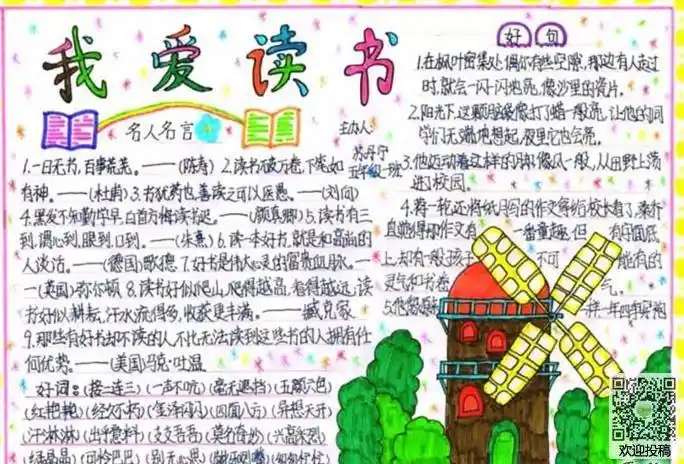 我爱读书
名人名言
主办人:
五年级二班
1.一日无书,百事荒芜。——(陈寿) 2.读书破万卷,下笔如
有神。——(杜甫) 3.书犹药也,善读之可以医愚。——(刘向)
4.黑发不知勤学早,白首方悔读书迟。——(颜真卿) 5.读书有三
到,谓心到,眼到,口到。——(朱熹) 6.读一本好书,就是和高尚的
人谈话。——(德国)歌德. 7.好书是伟大心灵的富贵血脉。—
—(英国)弥尔顿 8.读书好似爬山,爬得越高,看得越远;读
书好似耕耘,汗水流得多,收获更丰满。——臧克家
9.那些有好书却不读的人不比无法读到这些书的人拥有任
何优势。——(美国)马克·吐温
好词:(接二连三) (一声不吭) (毫无遮挡) (五颜六色)
(红艳艳) (金泽闪闪) (四面八方) (异想天开)
(汗淋淋) (出乎意料) (支支吾吾) (莫名奇妙) (兴高采烈)
(绿晶晶) (可怜巴巴) (别无心思)
好句
1.在枫叶密集处,偶尔有些空隙,那边有人走过
时,就会一闪一闪地亮,像沙里的瓷片。
2.阳光下,这颗脑袋像打了蜡一般亮,让他的同
学们无端地想起,夜里它也会亮。
3.他迈动着这样的脚像风一般,从田野上荡
进了校园。
4.将一轮还将纸月写的作文寄给校长看了,秦乔
且觉得那作文有 一番童趣,但 有脚面底
上,却有一般孩子 不可 能有的
灵气和书卷 气。
5.他 一样一年四季穿袍
欢迎投稿